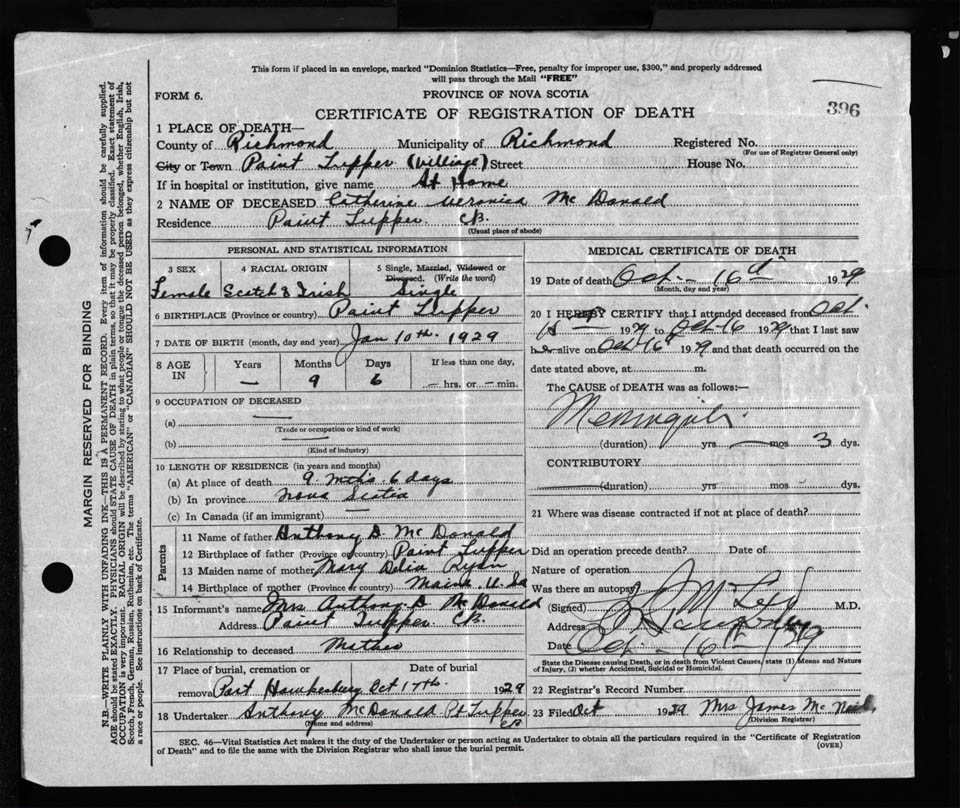 This form if placed in an envelope, marked "Dominion Statistics—Free, penalty for improper use, $300," and properly addressed
will pass through the Mail "FREE"
FORM 6.
PROVINCE OF NOVA SCOTIA
CERTIFICATE OF REGISTRATION OF DEATH
396
1 PLACE OF DEATH—
County of Richmond Municipality of Richmond Registered No.
(For use of Registrar General only)
City or Town Paint Tupper (village) Street House No.
If in hospital or institution, give name At Home
2 NAME OF DECEASED Catherine Veronica McDonald
Residence Paint Tupper CB.
(Usual place of abode)
PERSONAL AND STATISTICAL INFORMATION
3 SEX Female
4 RACIAL ORIGIN Scotch & Irish
5 Single, Married, Widowed or Divorced. (Write the word) Single
6 BIRTHPLACE (Province or country) Paint Tupper
7 DATE OF BIRTH (month, day and year) Jan 10th. 1929
8 AGE IN Years — Months 9 Days 6 If less than one day, — hrs. or — min.
9 OCCUPATION OF DECEASED
(a) —
(Trade or occupation or kind of work)
(b) —
(Kind of industry)
10 LENGTH OF RESIDENCE (in years and months)
(a) At place of death 9 mths 6 days
(b) In province Nova Scotia
(c) In Canada (if an immigrant) —
Parents
11 Name of father Anthony D. McDonald
12 Birthplace of father (Province or country) Paint Tupper
13 Maiden name of mother Mary Delia Ryan
14 Birthplace of mother (Province or country) Maine U.Sa
15 Informant's name Mrs. Anthony D McDonald
Address Paint Tupper CB.
16 Relationship to deceased Mother
17 Place of burial, cremation or removal Port Hawkesbury Date of burial Oct 17th. 1929
18 Undertaker Anthony McDonald Pt Tupper CB
(Name and address)
MEDICAL CERTIFICATE OF DEATH
19 Date of death Oct - 16th 1929
(Month, day and year)
20 I HEREBY CERTIFY that I attended deceased from Oct.
1929 to Oct 16 1929 that I last saw
her alive on Oct 16 1929 and that death occurred on the
date stated above, at m.
The CAUSE of DEATH was as follows:—
Meningitis.
(duration) yrs — mos 3 dys.
CONTRIBUTORY
(duration) yrs. mos. dys.
21 Where was disease contracted if not at place of death?
Did an operation precede death? Date of
Nature of operation
Was there an autopsy
(Signed) M.D.
Address
Date Oct - 16th 1929
State the Disease causing Death, or in death from Violent Causes, state (1) Means and Nature
of Injury, (2) whether Accidental, Suicidal or Homicidal.
22 Registrar's Record Number
23 Filed Oct 1929 Mrs James McNeil
(Division Registrar)
SEC. 46—Vital Statistics Act makes it the duty of the Undertaker or person acting as Undertaker to obtain all the particulars required in the "Certificate of Registration
of Death" and to file the same with the Division Registrar who shall issue the burial permit.
(OVER)
MARGIN RESERVED FOR BINDING
N.B.—WRITE PLAINLY WITH UNFADING INK—THIS IS A PERMANENT RECORD. Every item of information should be carefully supplied.
AGE should be stated EXACTLY. PHYSICIANS should STATE CAUSE OF DEATH in plain terms, so that it may be properly classified. Exact statement of
OCCUPATION is very important. RACIAL ORIGIN will be described by stating to what people or tongue the deceased person belonged, whether English, Irish,
Scotch, French, German, Russian, Ruthenian, etc. The terms "AMERICAN" or "CANADIAN" SHOULD NOT BE USED as they express citizenship but not
a race or people. See instructions on back of Certificate.